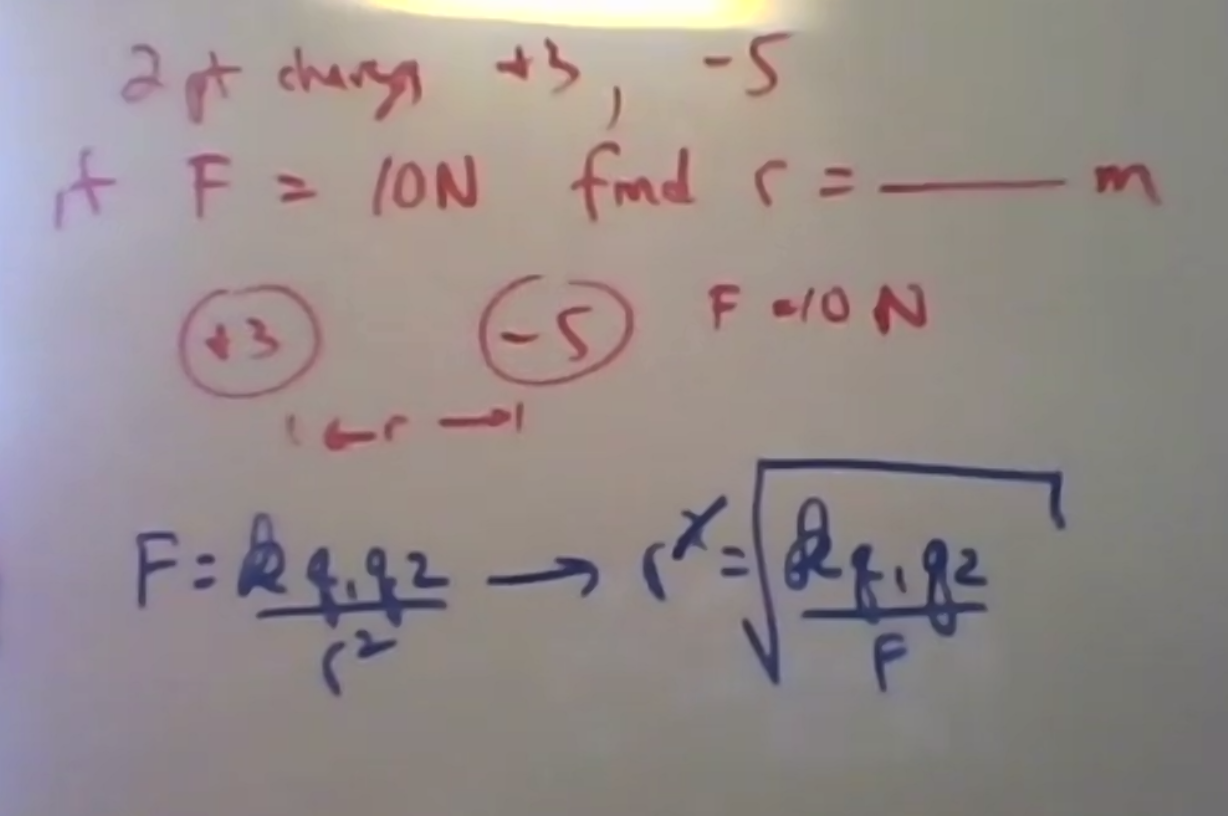 2 pt charges +3, -5
if F = 10N find r = ______ m
+3 -5 F = 10 N
ı ← r → ı
F = k q₁ q₂ / r² → r² = √(k q₁ q₂ / F)